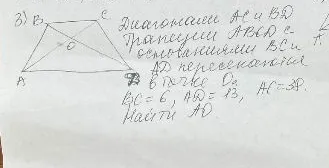 3) B C
O
A D
Диагонали AC и BD
Трапеции ABCD с
основаниями BC и
AD пересекаются
в точке O.
BC = 6, AD = 13, AC = 38.
Найти AO